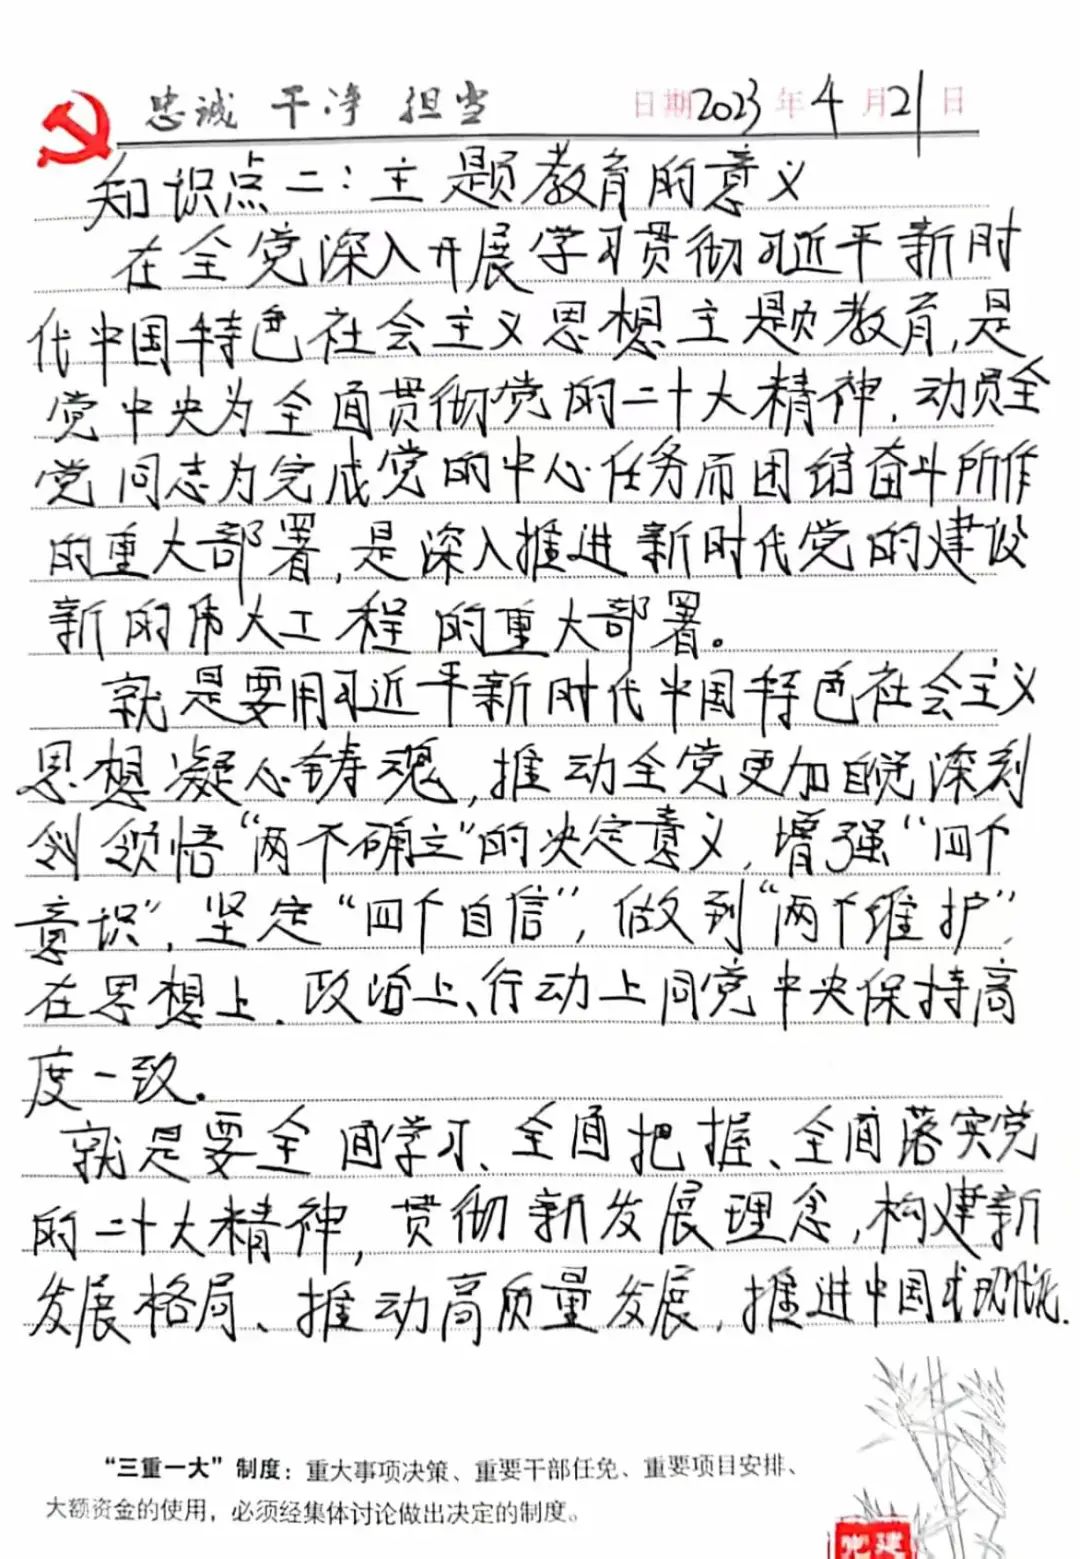 忠诚 干净 担当 日期2023年4月21日
知识点二：主题教育的意义
在全党深入开展学习贯彻习近平新时
代中国特色社会主义思想主题教育,是
党中央为全面贯彻党的二十大精神,动员全
党同志为完成党的中心任务而团结奋斗所作
的重大部署,是深入推进新时代党的建设
新的伟大工程的重大部署。
就是要用习近平新时代中国特色社会主义
思想凝心铸魂,推动全党更加自觉深刻
领悟“两个确立”的决定意义,增强“四个
意识”,坚定“四个自信”,做到“两个维护”,
在思想上.政治上、行动上同党中央保持高
度一致.
就是要全面学习、全面把握、全面落实党
的二十大精神,贯彻新发展理念,构建新
发展格局、推动高质量发展,推进中国式现代化.
“三重一大”制度：重大事项决策、重要干部任免、重要项目安排、
大额资金的使用，必须经集体讨论做出决定的制度。
党建